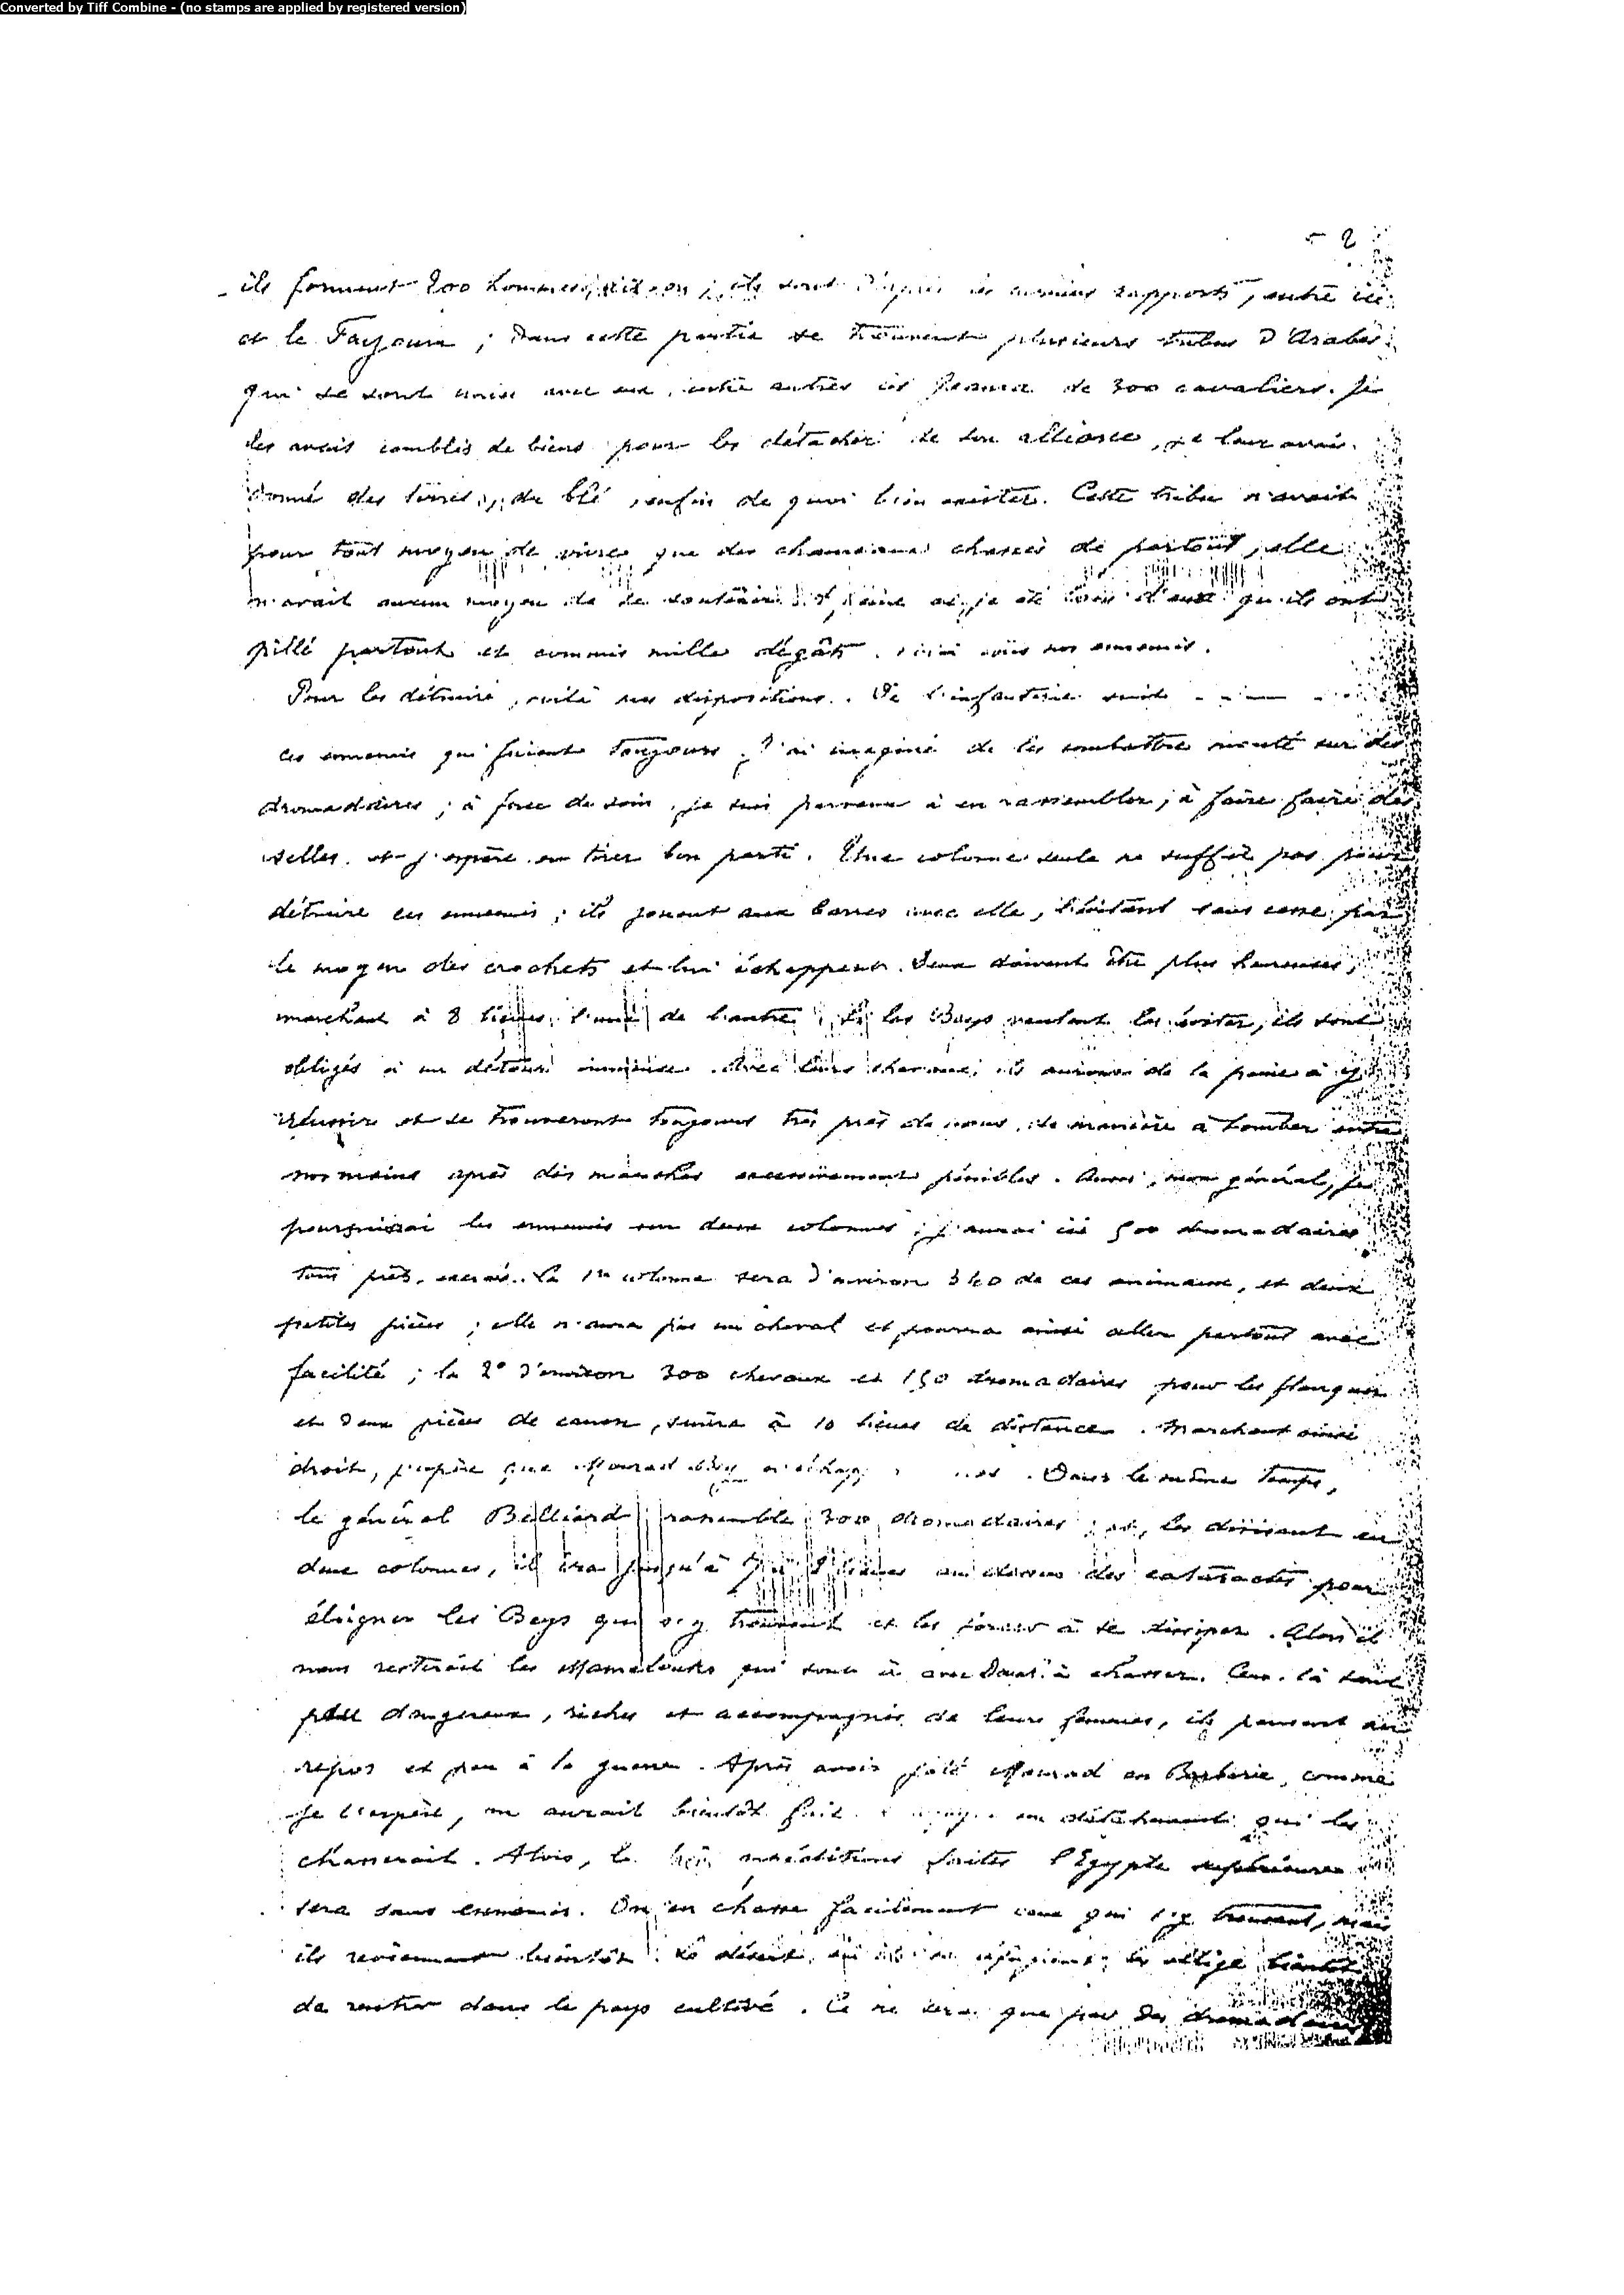 Converted by Tiff Combine - (no stamps are applied by registered version)
2
ils forment 200 hommes ; ils sont d'après les derniers rapports, entre ici
et le Fayoum ; Dans cette partie se trouvent plusieurs tribus d'Arabes
qui se sont unies avec eux, entre autres de 300 cavaliers. Je
les avais comblés de biens pour les détacher de son alliance, je leur avais
donné des terres, du blé, enfin de quoi bien exister. Cette tribu n'avait
pour tout moyen de vivres que des chameaux chassés de partout, elle
n'avait aucun moyen de se soutenir. à peine ai-je été loin d'eux qu'ils ont
pillé partout et commis mille dégâts. nos ennemis.
Pour les détruire, voilà mes dispositions. De l'infanterie
ces ennemis qui fuient toujours. J'ai imaginé de les combattre monté sur des
dromadaires ; à force de soin, je suis parvenu à en rassembler, à faire faire des
selles et j'espère en tirer bon parti. Une colonne seule ne suffit pas pour
détruire ces ennemis ; ils jouent aux barres avec elle, l'évitant sans cesse par
le moyen des crochets et lui échappent. Deux doivent être plus heureuses,
marchant à 8 lieues l'une de l'autre ; si les Beys veulent les éviter, ils sont
obligés à un détour immense. Avec leurs chameaux, ils auront de la peine à y
réussir et se trouveront toujours très près de nous, de manière à tomber entre
nos mains après des marches excessivement pénibles. Ainsi, mon général, je
poursuivrai les ennemis en deux colonnes ; j'aurai ici 500 dromadaires
tous prêts. La 1re colonne sera d'environ 340 de ces animaux, et deux
petites pièces ; elle n'aura pas un cheval et pourra ainsi aller partout avec
facilité ; la 2e d'environ 300 chevaux et 150 dromadaires pour les flanquer
et deux pièces de canon, suivra à 10 lieues de distance. Marchant ainsi
droit, j'espère que Mourad Bey. Dans le même temps,
le général Belliard rassemble 300 dromadaires ; et, les divisant en
deux colonnes, il ira jusqu'à lieues au dessus des cataractes pour
éloigner les Beys qui s'y trouvent et les forcer à se dissiper. Alors il
nous resterait les Mamelouks qui sont à chasser. Ceux-là sont
peu dangereux, riches et accompagnés de leurs femmes, ils pensent au
repos et peu à la guerre. Après avoir jeté Mourad en Barbarie, comme
je l'espère, on aurait bientôt fait un détachement qui les
chasserait. Alors, expéditions faites l'Egypte supérieure
sera sans ennemis. On en chasse facilement ceux qui s'y trouvent, mais
ils reviennent bientôt. Le désert, où ils se réfugient, les oblige bientôt
de rentrer dans le pays cultivé. Ce ne sera que par des dromadaires